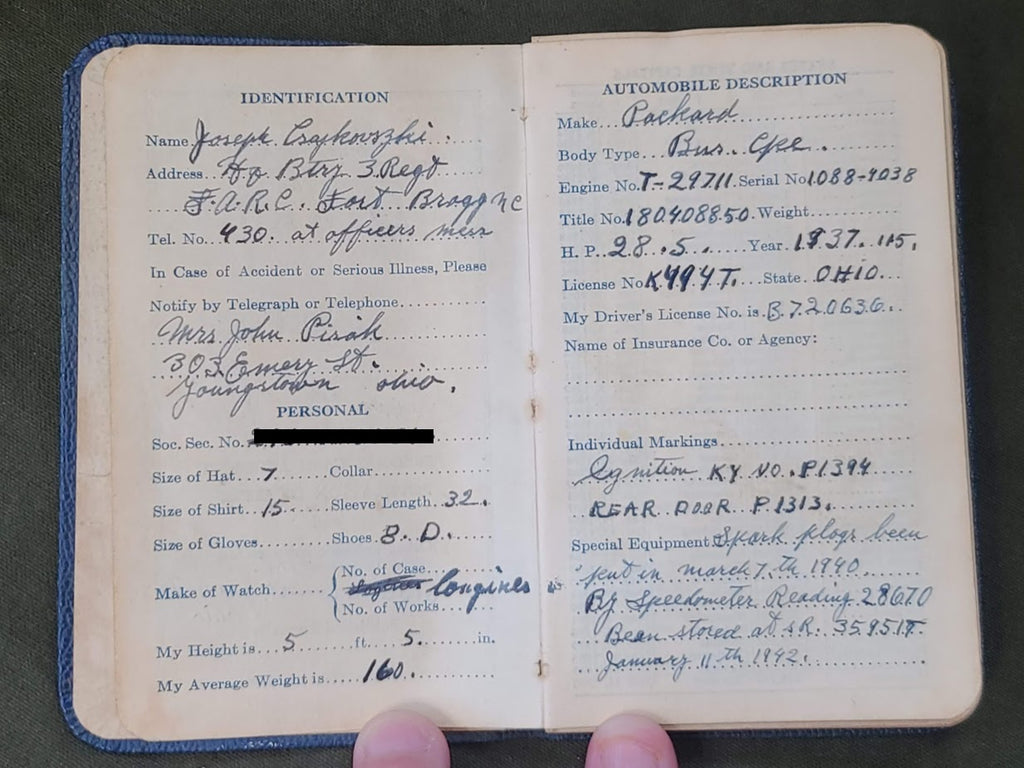 IDENTIFICATION
Name Joseph Csykowszki
Address Hq Btry 3 Regt
F.A.R.C. Fort Bragg NC
Tel. No. 430. at officers mess
In Case of Accident or Serious Illness, Please
Notify by Telegraph or Telephone
Mrs John Pisak
303 Emery St.
Youngstown ohio.
PERSONAL
Soc. Sec. No.
Size of Hat 7 Collar
Size of Shirt 15 Sleeve Length 32.
Size of Gloves Shoes 8. D.
No. of Case
Make of Watch Longines
No. of Works
My Height is 5 ft. 5. in.
My Average Weight is 160.
AUTOMOBILE DESCRIPTION
Make Packard
Body Type Bus. Cpe.
Engine No. T-29711. Serial No 1088-4038
Title No. 180408850. Weight
H. P. 28.5. Year 1937. 115.
License No K494T. State OHIO.
My Driver's License No. is B.720636.
Name of Insurance Co. or Agency:
Individual Markings
Ignition KY NO. P1394
REAR DOOR P.1313.
Special Equipment Spark plogs been
put in march 7 th 1940
By Speedometer Reading 28670
Bean stored at SR. 35951
January 11 th 1942.